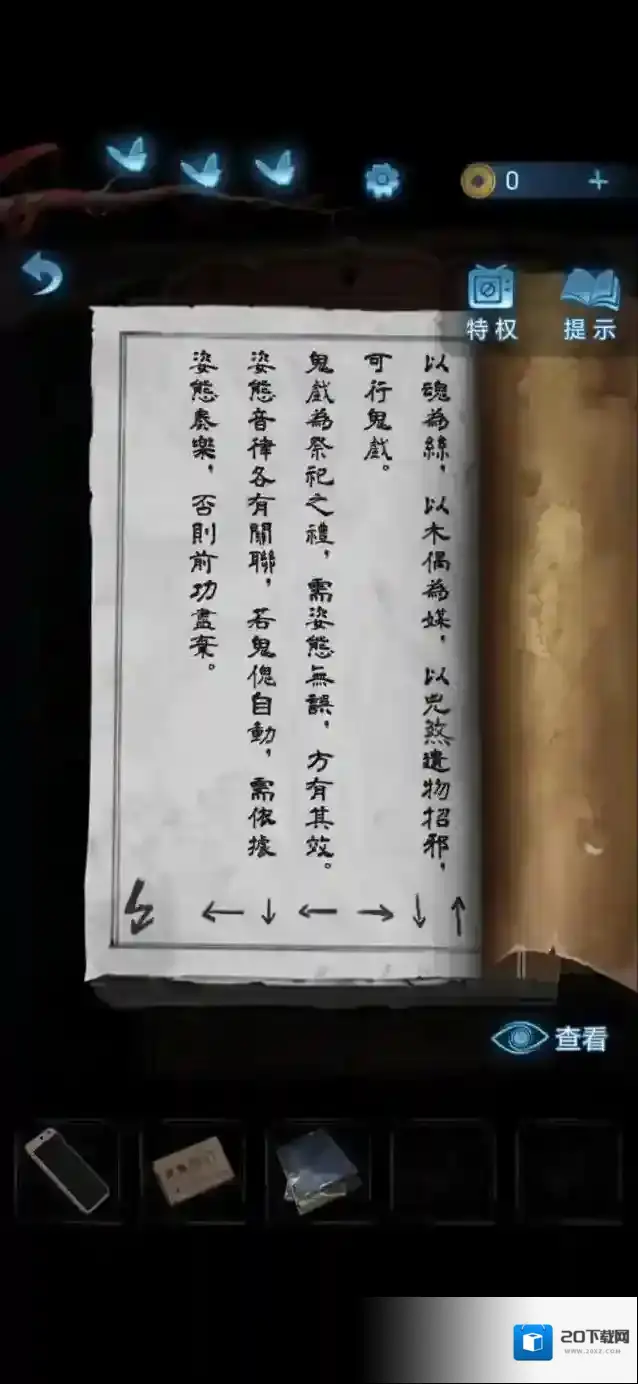 0
特权
提示
以魂為絲，以木偶為媒，以兇煞遺物招邪，
可行鬼戲。
鬼戲為祭祀之禮，需姿態無誤，方有其效。
姿態音律各有關聯，若鬼傀自動，需依據
姿態奏樂，否則前功盡棄。
↑↓→←↓←
查看
20下载网
WWW.20XZ.COM